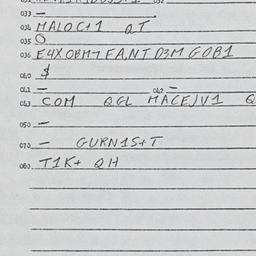 033 –
034 MALOC+1 QT
035 O
036 E4X OBM7 FA,NT D3M GOB1
040 $
041 – 042 –
043 COM QGL MACEJV1 Q
050 –
070 – GURN1S+T
060 T1K+ QH